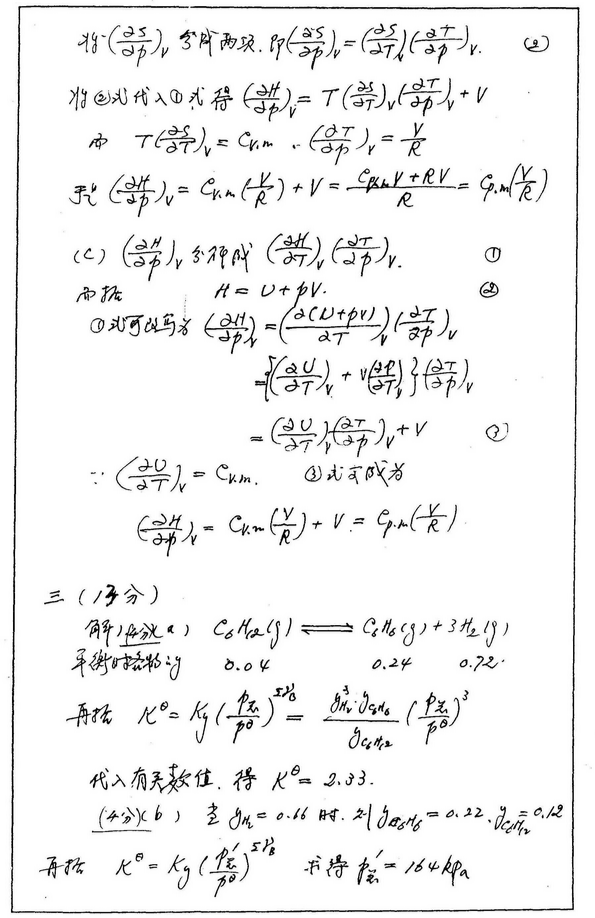 将(∂S/∂p)_V 分成两项.即(∂S/∂p)_V = (∂S/∂T)_V(∂T/∂p)_V. ②
将②式代入①式得 (∂H/∂p)_V = T(∂S/∂T)_V(∂T/∂p)_V + V
而 T(∂S/∂T)_V = C_{V.m} . (∂T/∂p)_V = V/R
于是 (∂H/∂p)_V = C_{V.m}(V/R) + V = (C_{V.m}V + RV)/R = C_{p.m}(V/R)
(C) (∂H/∂p)_V 分解成 (∂H/∂T)_V(∂T/∂p)_V. ①
而 H = U + pV. ②
①式可改写为 (∂H/∂p)_V = (∂(U+pV)/∂T)_V(∂T/∂p)_V
= {(∂U/∂T)_V + V(∂p/∂T)_V}(∂T/∂p)_V
= (∂U/∂T)_V(∂T/∂p)_V + V ③
∵ (∂U/∂T)_V = C_{V.m}. ③式变成为
(∂H/∂p)_V = C_{V.m}(V/R) + V = C_{p.m}(V/R)
三 (13分)
解 a) C₆H₁₂(g) ⇌ C₆H₆(g) + 3H₂(g)
平衡时 y 0.04 0.24 0.72
再据 K^θ = K_y(p总/p^θ)^{Σν_B} = (y³_{H₂}·y_{C₆H₆}/y_{C₆H₁₂})(p总/p^θ)³
代入有关数值. 得 K^θ = 2.33.
(4分)(b) 当 y_{H₂} = 0.66 时. 则 y_{C₆H₆} = 0.22. y_{C₆H₁₂} = 0.12
再据 K^θ = K_y(p'总/p^θ)^{Σν_B} 求得 p'总 = 164 kPa